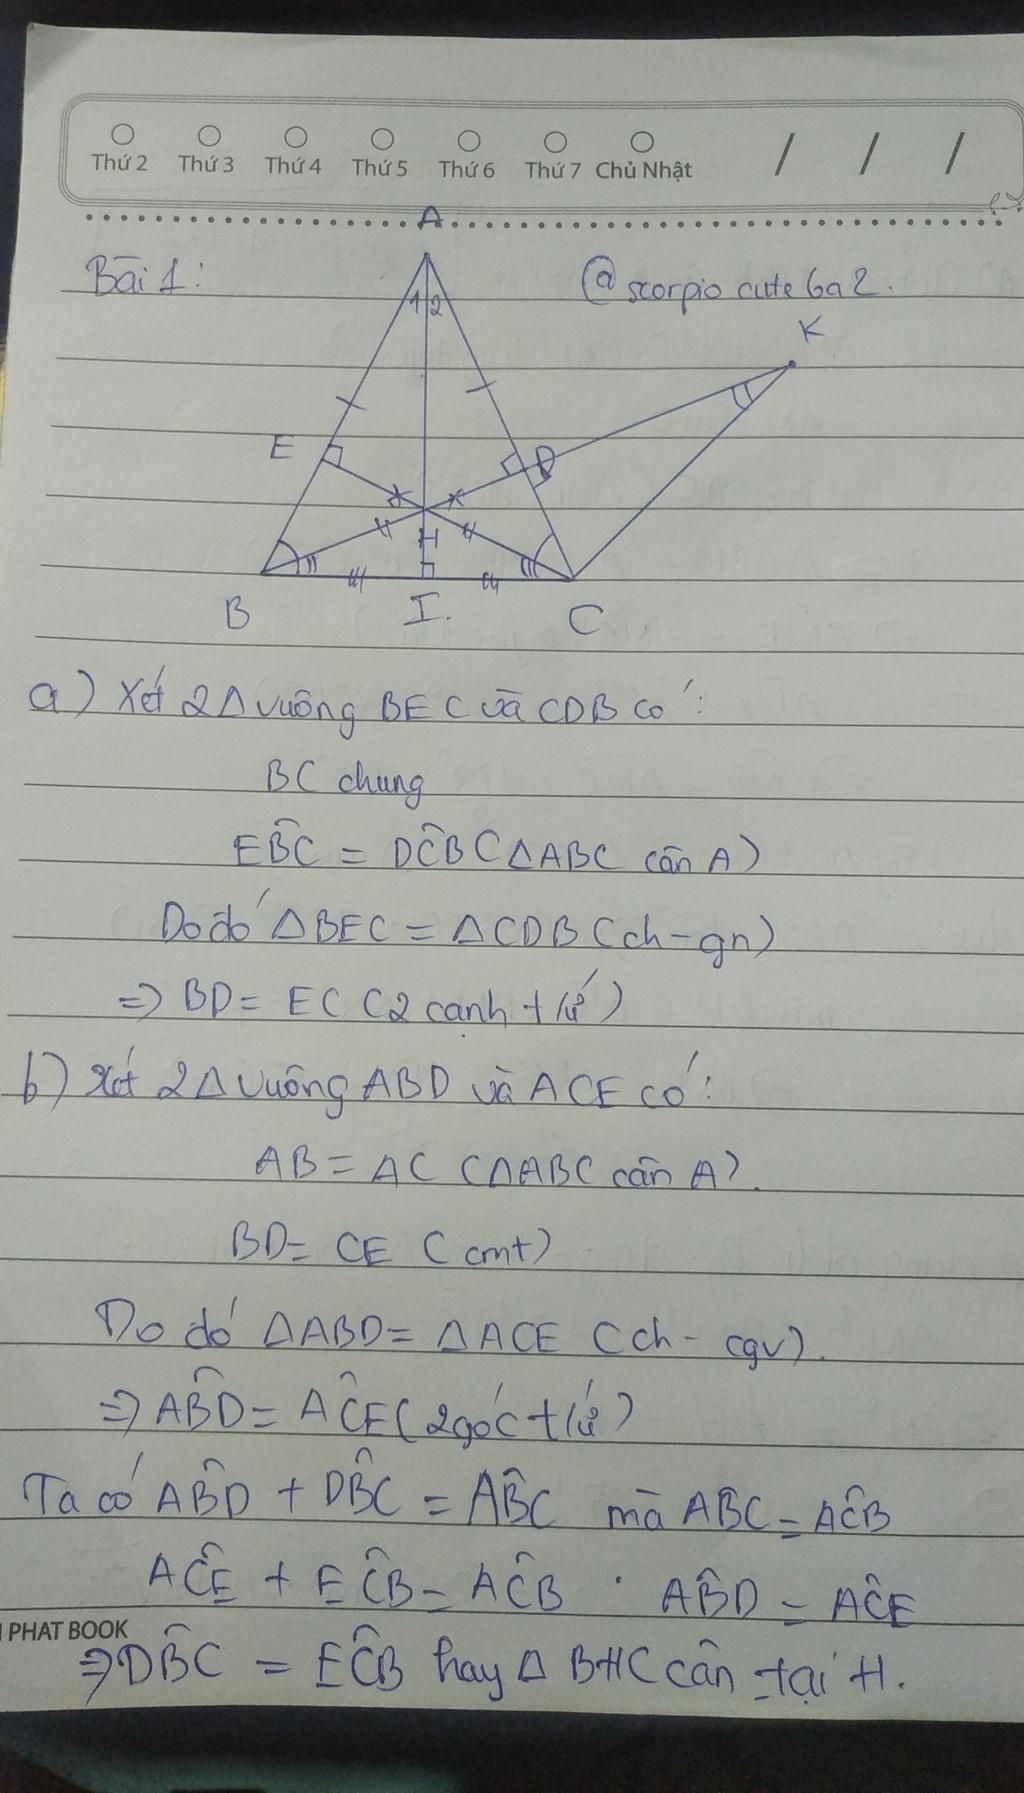 Thứ 2 Thứ 3 Thứ 4 Thứ 5 Thứ 6 Thứ 7 Chủ Nhật / / /
Bài 1:
@scorpio cute 6a2.
A
1 2
K
E
D
H
B I. C
a) Xét 2Δ vuông BEC và CDB có:
BC chung
EB̂C = DĈB (ΔABC cân A)
Do đó ΔBEC = ΔCDB (ch-gn)
=> BD = EC (2 cạnh t/ứ)
b) Xét 2Δ vuông ABD và ACE có:
AB = AC (ΔABC cân A).
BD = CE (cmt)
Do đó ΔABD = ΔACE (ch - cgv).
=> AB̂D = AĈE (2 góc t/ứ)
Ta có AB̂D + DB̂C = AB̂C mà AB̂C = AĈB
AĈE + EĈB = AĈB . AB̂D = AĈE
PHAT BOOK
=> DB̂C = EĈB hay Δ BHC cân tại H.